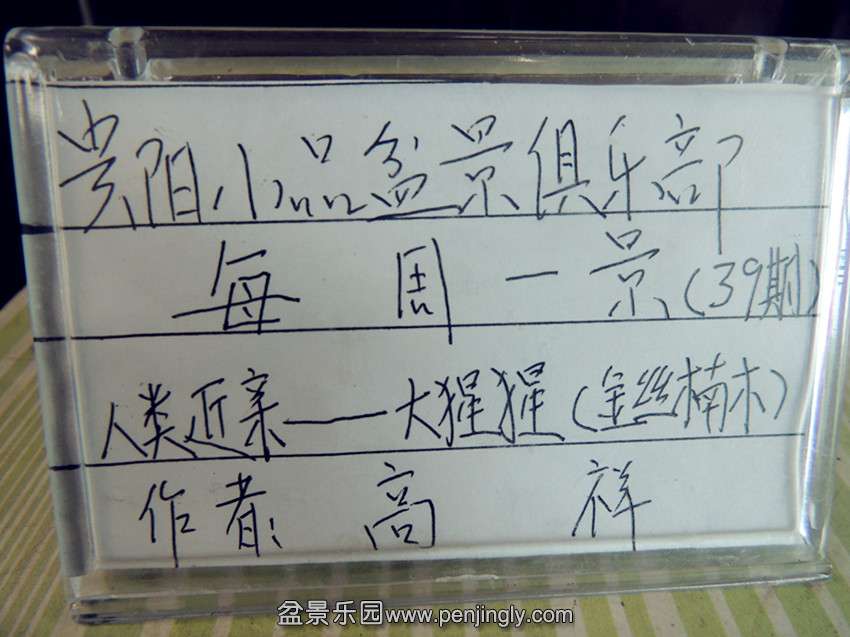 贵阳小品盆景俱乐部
每周一景(39期)
人类近亲——大猩猩(金丝楠木)
作者:高祥
盆景乐园www.penjingly.com